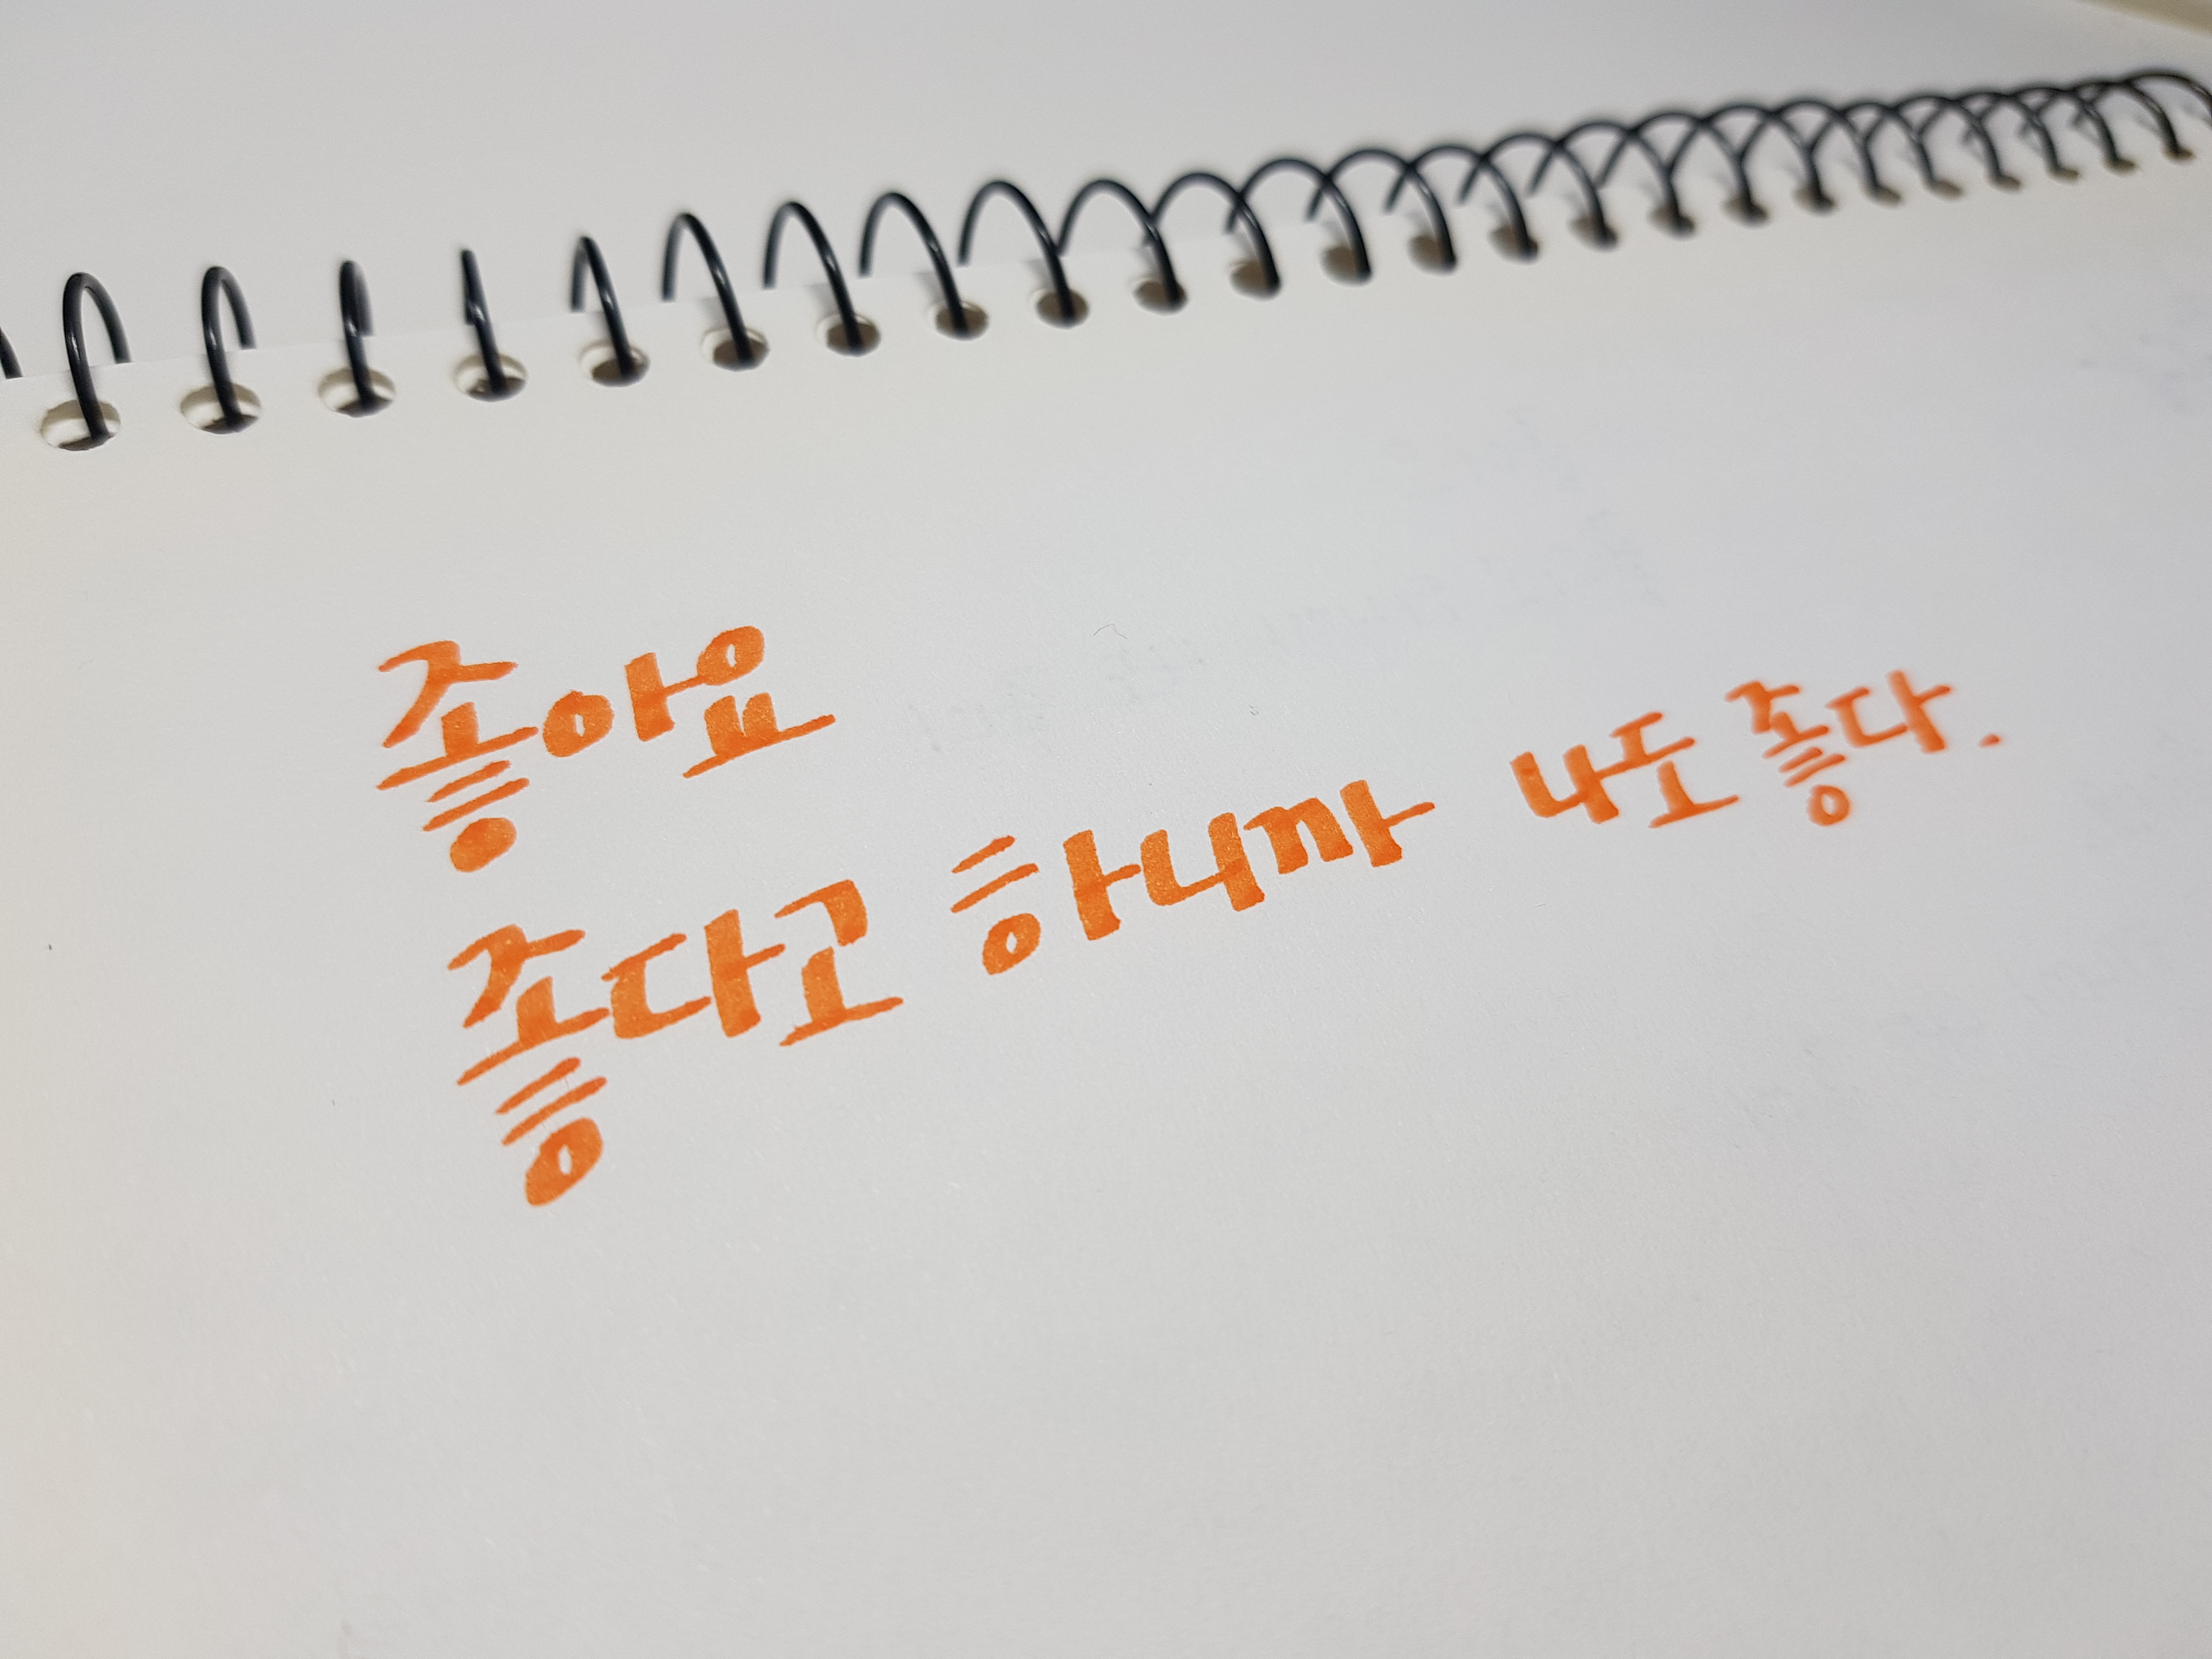 좋아요
좋다고 하니까 나도 좋다.